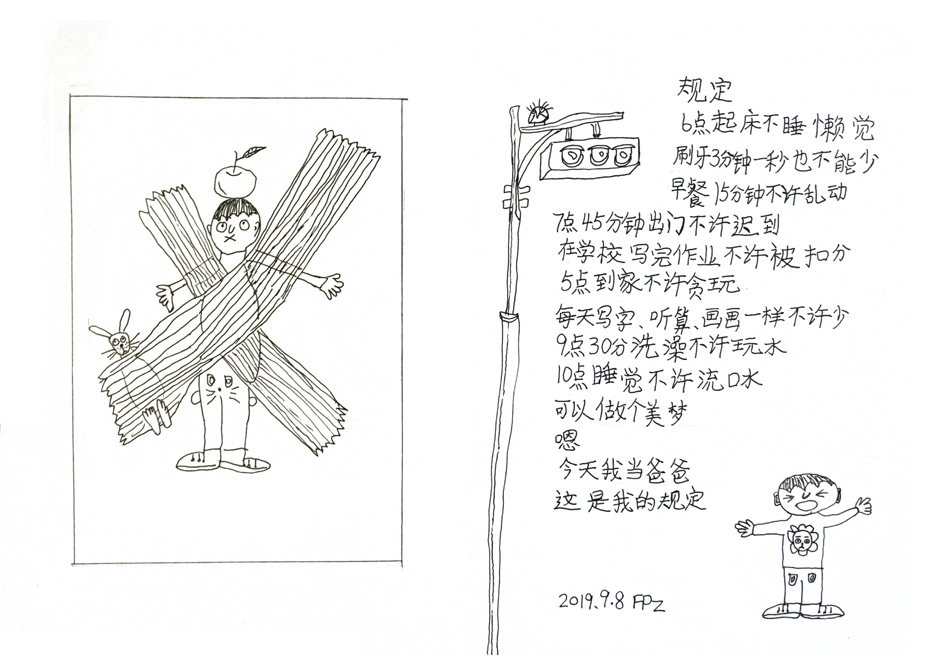 规定
6点起床不睡懒觉
刷牙3分钟一秒也不能少
早餐15分钟不许乱动
7点45分钟出门不许迟到
在学校写完作业不许被扣分
5点到家不许贪玩
每天写字、听算、画画一样不许少
9点30分洗澡不许玩水
10点睡觉不许流口水
可以做个美梦
嗯
今天我当爸爸
这是我的规定
2019.9.8 FPZ